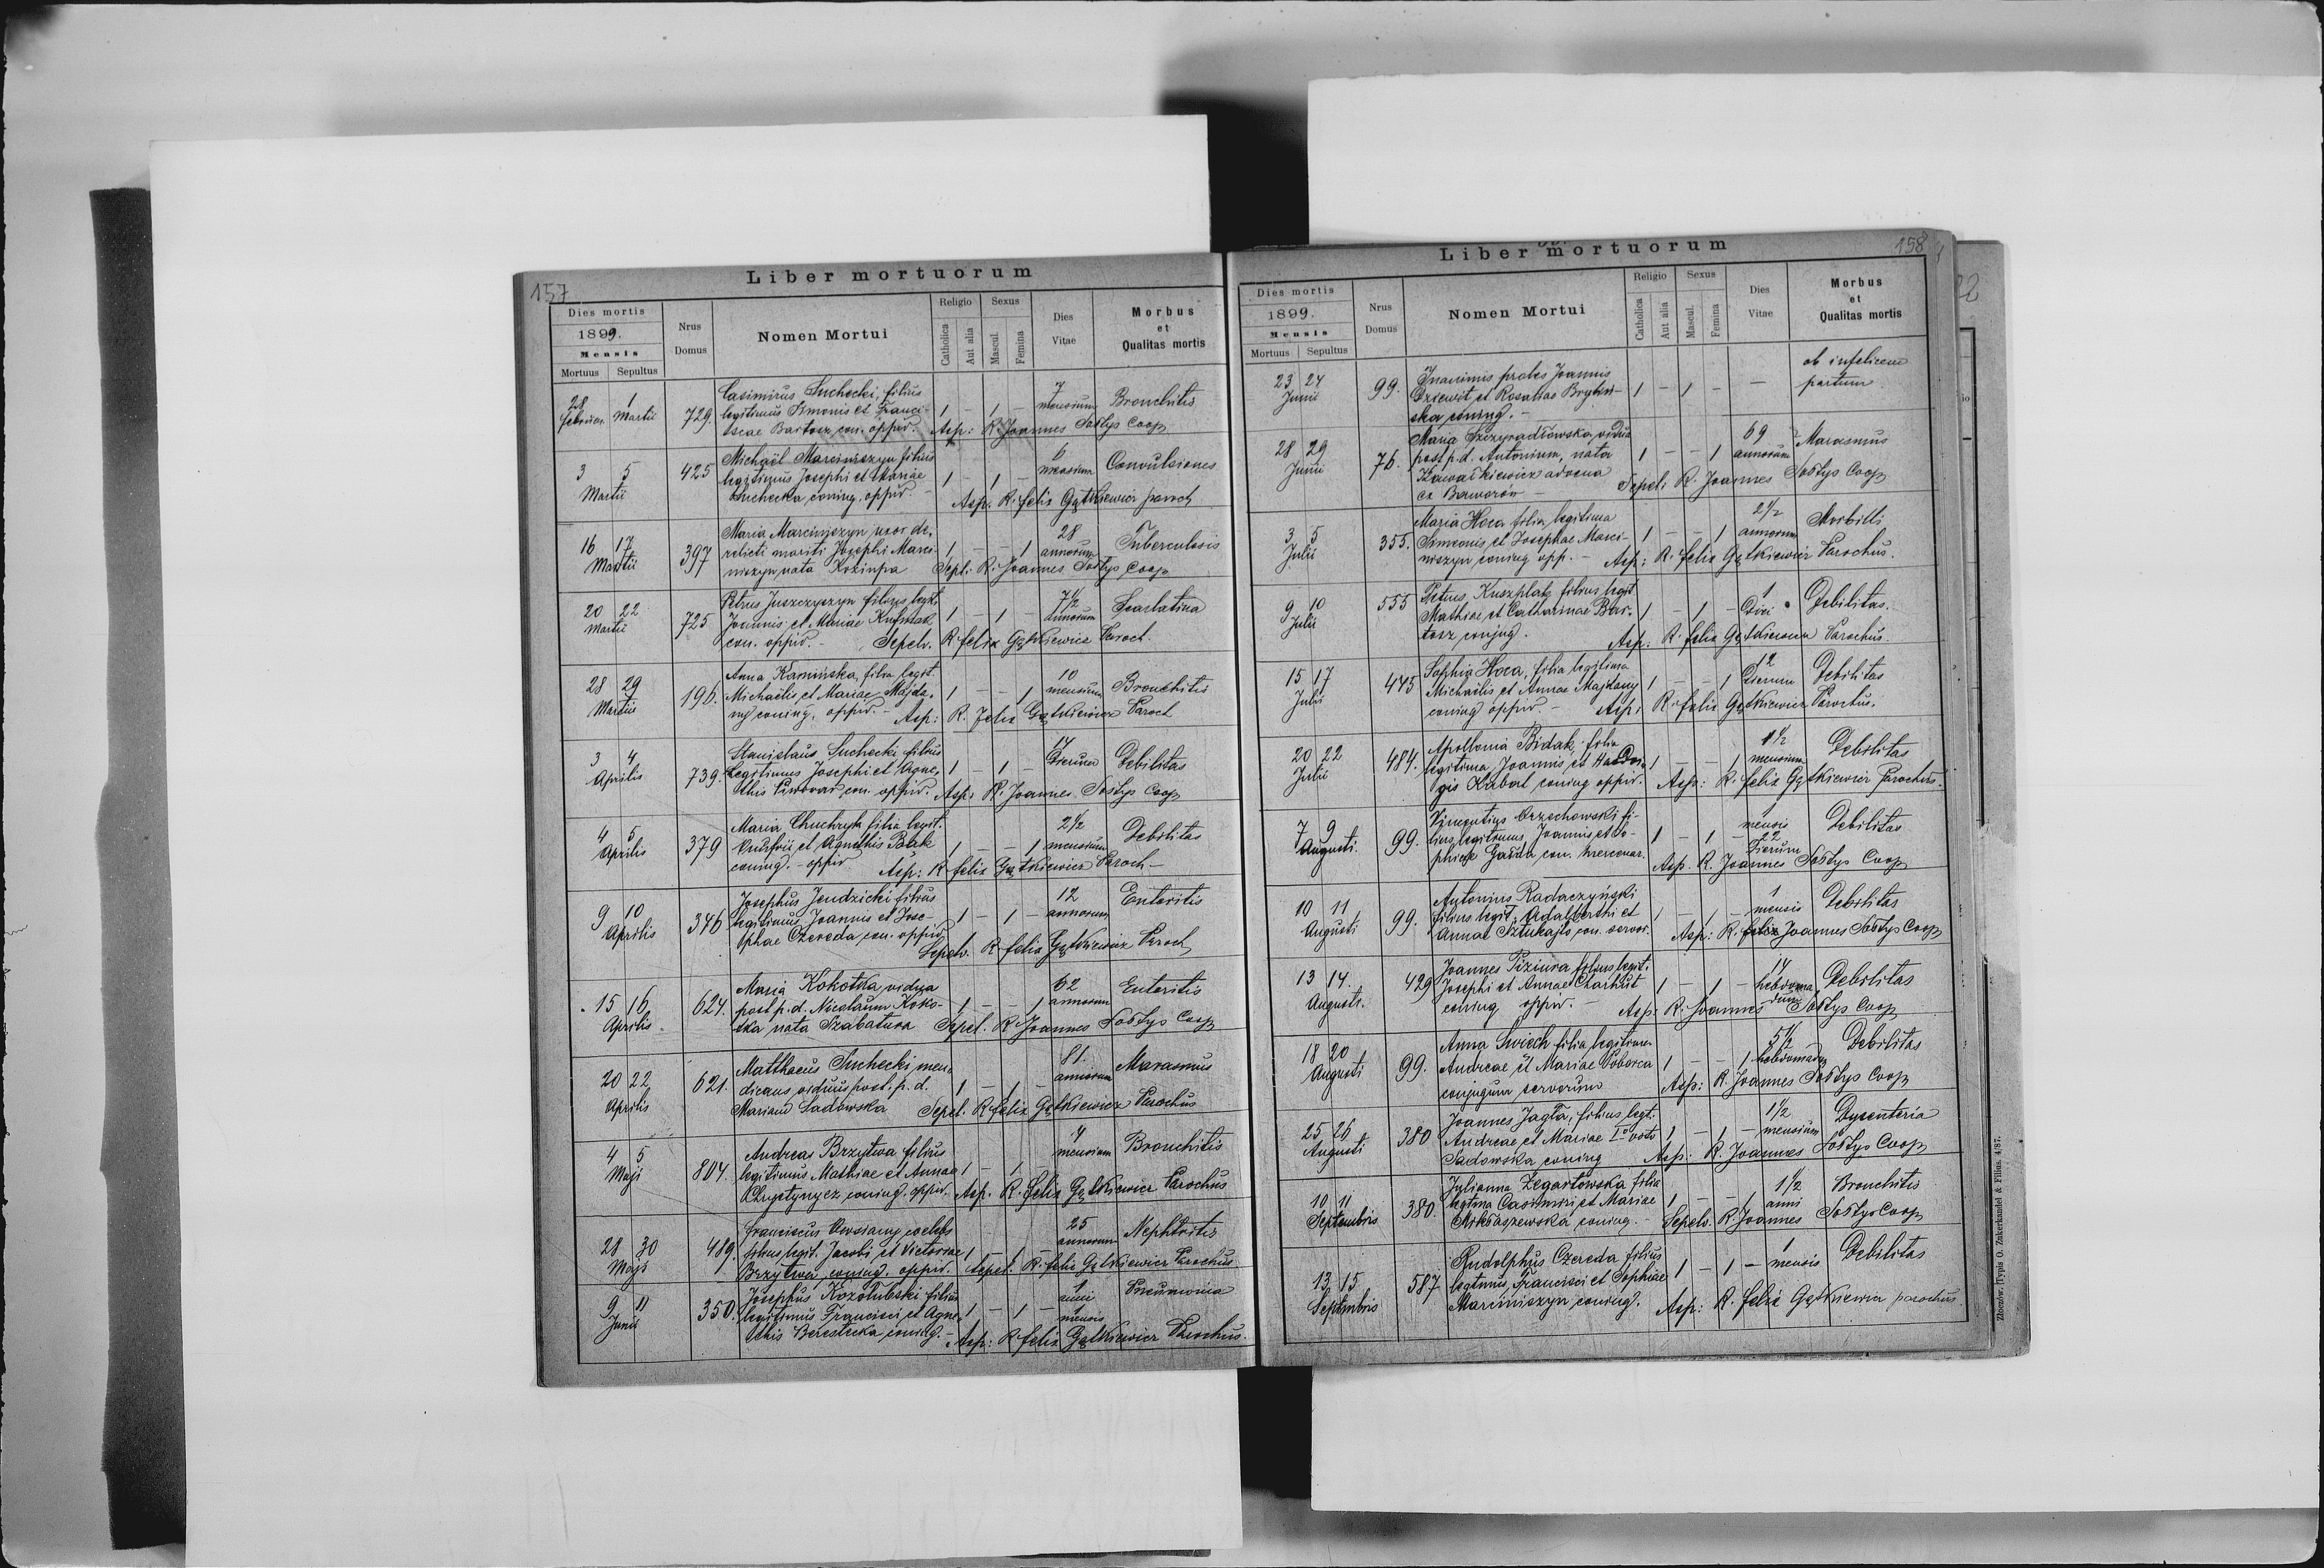 157
Liber mortuorum
Dies mortis
1899.
Mensis
Mortuus Sepultus
Nrus Domus
Nomen Mortui
Religio
Catholica
Aut alia
Sexus
Mascul.
Femina
Dies Vitae
Morbus et Qualitas mortis
28 1 Casimirus Suchecki, filius 7
Februar. Martii 729. legitimus Simonis et Franci- 1 - 1 - mensium Bronchitis
scae Bartosz con. oppid. Asp: R. Joannes Sołtys Coop
3 5 Michaël Marciniszyn filius 6
Martii 425 legitimus Josephi et Mariae 1 - 1 - mensium Convulsiones
Suchecka coniug. oppid. - Asp. R. Felix Gątkiewicz paroch
16 17 Maria Marciniszyn uxor de- 28
Martii 397 relicti mariti Josephi Marci- 1 - - 1 annorum Tuberculosis
niszyn nata Sepel: R. Joannes Sołtys Coop
20 22 Petrus Juszczyszyn filius legit. 7 1/2
Martii 725 Joannis et Mariae 1 - 1 - annorum Scarlatina
con. oppid. - Sepelv. R. Felix Gątkiewicz Paroch.
28 29 Anna Kamińska, filia legit. 10
Martii 196. Michaëlis et Mariae Majda- 1 - - 1 mensium Bronchitis
ny coniug. oppid. - Asp: R. Felix Gątkiewicz Paroch
3 4 Stanislaus Suchecki filius 17
Aprilis 739. legitimus Josephi et Agne- 1 - 1 - Dierum Debilitas
this con. oppid. Asp: R. Joannes Sołtys Coop
4 5 Maria filia legit. 2 1/2
Aprilis 379 et Agnethis Polak 1 - - 1 mensium Debilitas
coniug. - oppid Asp: R. Felix Gątkiewicz Paroch -
9 10 Josephus Jendzicki filius 12 Enteritis
Aprilis 346 legitimus Joannis et Jose- 1 - 1 - annorum
phae Czereda con. oppid. Sepelv. R. Felix Gątkiewicz Paroch
15 16 Maria Kokotka vidua 62 Enteritis
Aprilis 624. post p. d. Nicolaum Koko- 1 - - 1 annorum
tka nata Szabatura Sepel. R. Joannes Sołtys Coop
20 22 Matthaeus Suchecki men- 81. Marasmus
Aprilis 621. dicans viduus post. p. d. 1 - 1 - annorum
Mariam Sadowska Sepel. R. Felix Gątkiewicz Parochus
4 5 Andreas Brzytwa filius 4 Bronchitis
Maji 804. legitimus Mathiae et Annae 1 - 1 mensium
coniug. oppid. Asp. R. Felix Gątkiewicz Parochus
28 30 Franciscus Owsiany coelebs 25 Nephritis
Maji 489. filius legit. Jacobi et Victoriae 1 - 1 - annorum
Brzytwa coniug. oppid. Sepel. R. Felix Gątkiewicz Parochus
9 11 Josephus Kozołubski filius 1 anni Pneumonia
Junii 350. legitimus Francisci et Agne- 1 - 1 - 1 mensis
this Berestecka coniug. - Asp: R. Felix Gątkiewicz Parochus.
158
Liber mortuorum
Dies mortis
1899.
Mensis
Mortuus Sepultus
Nrus Domus
Nomen Mortui
Religio
Catholica
Aut alia
Sexus
Mascul.
Femina
Dies Vitae
Morbus et Qualitas mortis
23 24 Inanimis proles Joannis ob infelicem
Junii 99. Dziewit et Rosaliae 1 - 1 - - partum
ska coniug. -
28 29 Maria vidua 69 Marasmus
Junii 76. post p. d. Antonium, nata 1 - - 1 annorum
advena Sepel: R. Joannes Sołtys Coop
ex Baworów -
3 5 Maria Hoca filia legitima 2 1/2 Morbilli
Julii 355. Simeonis et Josephae Marci- 1 - - 1 annorum
niszyn coniug opp. - Asp: R. Felix Gątkiewicz Parochus.
9 10 555 Petrus Kuszplak filius legit 1
Julii Mathiae et Catharinae Bar- 1 - 1 - Diei Debilitas.
tosz coniug. Asp: R. Felix Gątkiewicz Parochus.
15 17 Sophia Hoca, filia legitima 12 Debilitas
Julii 475 Michaëlis et Annae Majdany 1 - - 1 Dierum
coniug oppid - Asp: R. Felix Gątkiewicz Parochus.
20 22 Apollonia Bidak, filia 1 1/2 Debilitas
Julii 484. legitima Joannis et 1 - - 1 mensium
coniug oppid. Asp: R. Felix Gątkiewicz Parochus.
7 9 Vincentius Orzechowski fi- 1 mensis Debilitas
Augusti. 99. lius legitimus Joannis et So- 1 - 1 - 22 Dierum
phiae Garda con. mercenar. Asp. R. Joannes Sołtys Coop
10 11 Antonius Radaczyński 1 Debilitas
Augusti 99. filius legit. Adalberthi et 1 - 1 - mensis
Annae Sztukajło con. servor. Asp: R. Felix Joannes Sołtys Coop
13 14. 429 Joannes Piziura filius legit. Debilitas
Augusti. Josephi et Annae Charkut 1 - 1 - hebdoma-
coniug oppid. - Asp: R. Joannes dum Sołtys Coop
18 20 Anna Świech filia legitima 5 1/2 Debilitas
Augusti 99. Andreae et Mariae Poborca 1 - - 1 hebdomadum
conjugum servorum Asp: R. Joannes Sołtys Coop
25 26 Joannes Jagła, filius legt. 1 1/2 Dysenteria
Augusti 380 Andreae et Mariae Io voto 1 - 1 - mensium
Sadowska coniug Asp: R. Joannes Sołtys Coop
10 11 Julianna Zegartowska filia 1 1/2 Bronchitis
Septembris 380. legtma Casimiri et Mariae 1 - - 1 anni
Mikłaszewska coniug. - Sepelv. R. Joannes Sołtys Coop
13 15 Rudolphus Czereda filius 1 Debilitas
Septembris 587 legtmus Francisci et Sophiae 1 - 1 - mensis
Marciniszyn coniug. Asp: R. Felix Gątkiewicz parochus
Złoczów, Typis O. Zukerkandel & Filius. 4/87.